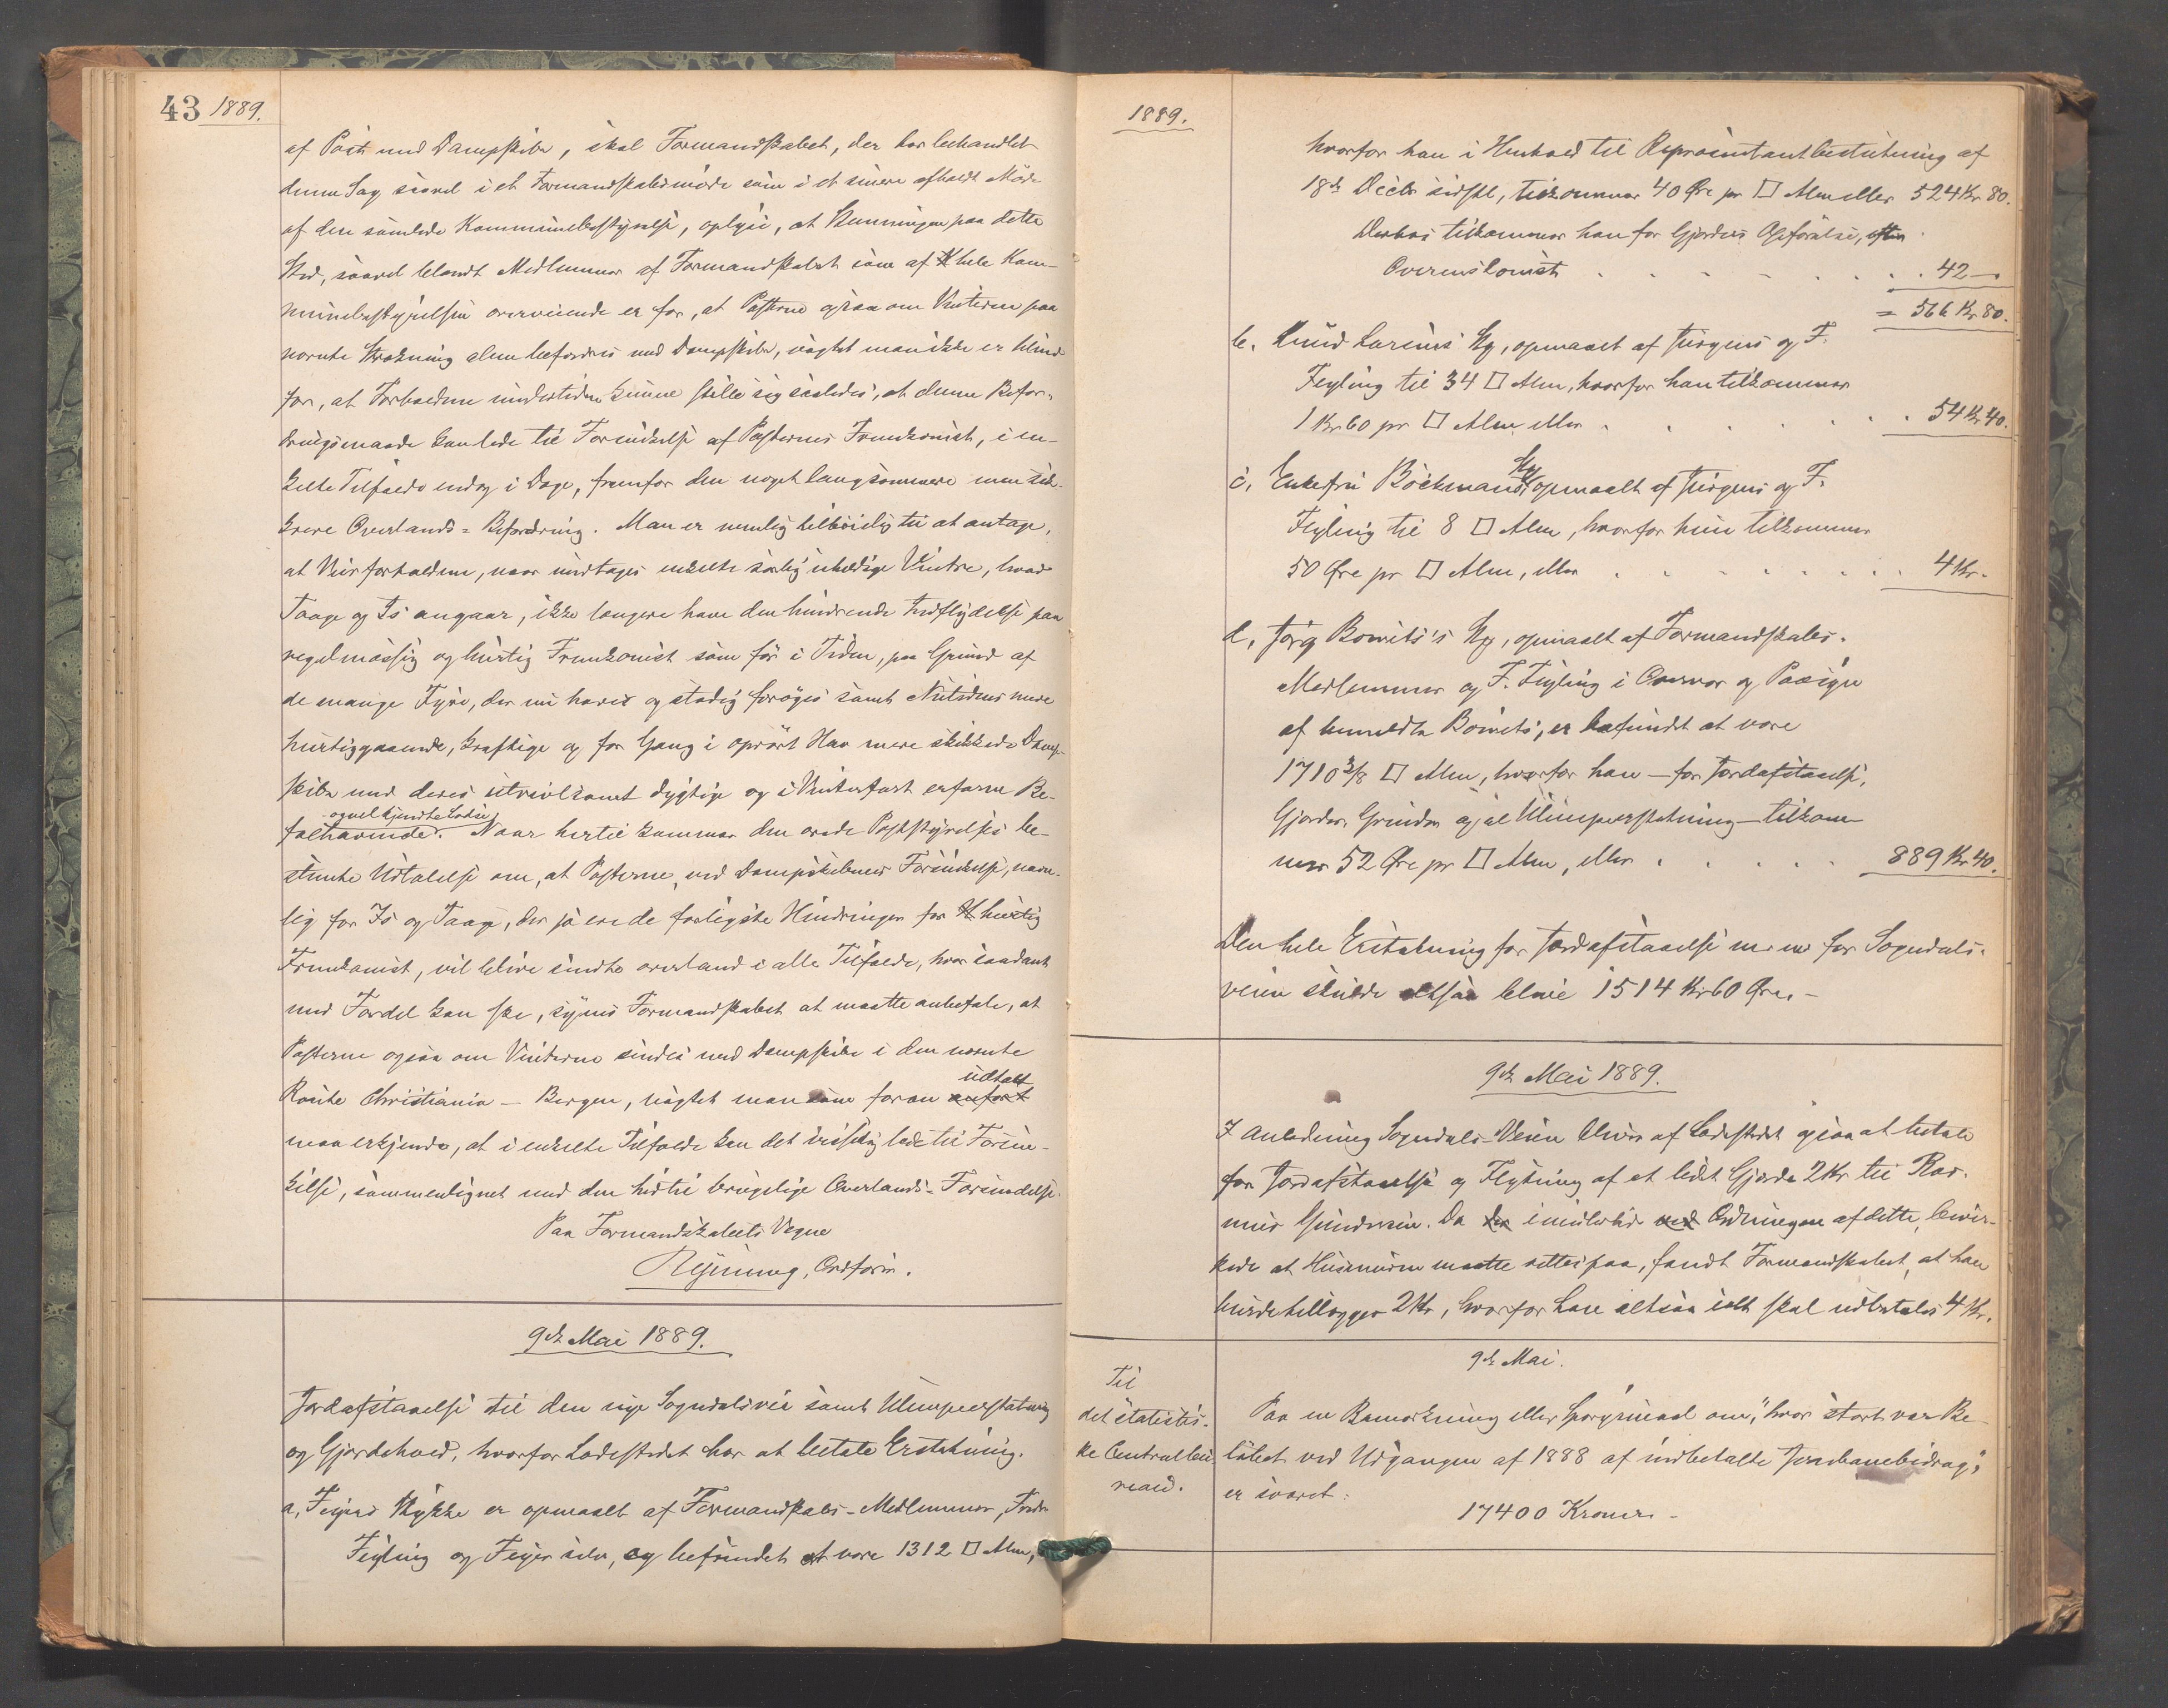 43 1889.
af Post med Dampskibe, skal Formandskabet, der har behandlet
denne Sag saavel i et Formandskabsmøde som i et senere afholdt Møde
af den samlede Kommunebestyrelse, oplyse, at Stemningen paa dette
Sted, saavel blandt Medlemmer af Formandskabet som af hele Kom-
munebestyrelsen overveiende er for, at Posterne ogsaa om Vinteren paa
nævnte Strækning alene befordres med Dampskibe, uagtet man ikke er blind
for, at Forholdene undertiden kunne stille sig saaledes, at denne Befor-
dringsmaade kan lede til Forsinkelse af Posternes Fremkomst, i en-
kelte Tilfælde endog i Dage, fremfor den noget langsommere men sik-
krere Overlands-Befordring. Man er nemlig tilbøielig til at antage,
at Veirforholdene, naar undtages enkelte særlig uheldige Vintre, hvad
Taage og Is angaar, ikke længere have den hindrende Indflydelse paa
regelmæssig og hurtig Fremkomst som før i Tiden, paa Grund af
de mange Fyre, der nu haves og stadig forøges samt Nutidens mere
hurtiggaaende, kraftige og for Gang i oprørt Hav mere skikkede Damp-
skibe med deres utvivlsomt dygtige og i Vinterfart erfarne Be-
falhavende og vel kjendte Lodser. Naar hertil kommer den ærede Poststyrelses be-
stemte Udtalelse om, at Posterne, ved Dampskibenes Forsinkelse, navn-
lig for Is og Taage, der jo ere de farligste Hindringer for hurtig
Fremkomst, vil blive sendte overland i alle Tilfælde, hvor saadant
med Fordel kan ske, synes Formandskabet at maatte anbefale, at
Posterne ogsaa om Vinteren sendes med Dampskibe i den nævnte
Route Christiania - Bergen, uagtet man som foran anført udtalt
maa erkjende, at i enkelte Tilfælde kan det lede til Forsin-
kelse, sammenlignet med den hidtil brugelige Overlands-Forsendelse.
Paa Formandskabets Vegne
Ordfører.
9de Mai 1889.
Jordafstaaelse til den nye Sogndalsvei samt Ulempeerstatning
og Gjerdehold, hvorfor Ladestedet har at betale Erstatning.
a, Feyers Stykke er opmaalt af Formandskabs-Medlemmer, Fredr
Feyling og Feyer selv, og befundet at være 1312 □ Alen,
1889.
hvorfor han i Henhold til Repræsentantbeslutning af
18de Decbr sidstl, tilkommer 40 Øre pr □ Alen eller 524 Kr 80.
Derhos tilkommer han for Gjerdes Opførelse, efter
Overenskomst . . . . . . . . 42 -
= 566 Kr 80.
b. Knud Larsens Stg, opmaalt af Jürgens og F.
Feyling til 34 □ Alen, hvorfor han tilkommer
1 Kr 60 pr □ Alen eller . . . . . . 54 Kr 40.
c, Enkefru Böckmans Stg opmaalt af Jürgens og F.
Feyling til 8 □ Alen, hvorfor hun tilkommer
50 Øre pr □ Alen, eller . . . . . . . 4 Kr.
d, Jörg Stg, opmaalt af Formandskabs-
Medlemmer og F. Feyling i Overvær og Paasyn
af bemeldte, er befundet at være
1710 3/8 □ Alen, hvorfor han - for Jordafstaaelse,
Gjerder, Grinder og al Ulempeerstatning - tilkom-
mer 52 Øre pr □ Alen, eller . . . . . 889 Kr 40.
Den hele Erstatning for Jordafstaaelse m. m for Sogndals-
veien skulde altsaa blive 1514 Kr 60 Øre. -
9de Mai 1889.
I Anledning Sogndals-Veien bliver af Ladestedet ogsaa at betale
for Jordafstaaelse og Flytning af et lidet Gjerde 2 Kr til Ras-
mus. Da der imidlertid ved Ordningen af dette, bevir-
kede at Husmuren maatte rettes paa, fandt Formandskabet, at han
burde tillægges 2 Kr, hvorfor han altsaa ialt skal udbetales 4 Kr.
9de Mai.
Til
det statistis-
ke Centralbu-
reau.
Paa en Bemærkning eller Spørgsmaal om, "hvor stort var Be-
løbet ved Udgangen af 1888 af indbetalte Jernbanebidrag",
er svaret:
17400 Kroner. -